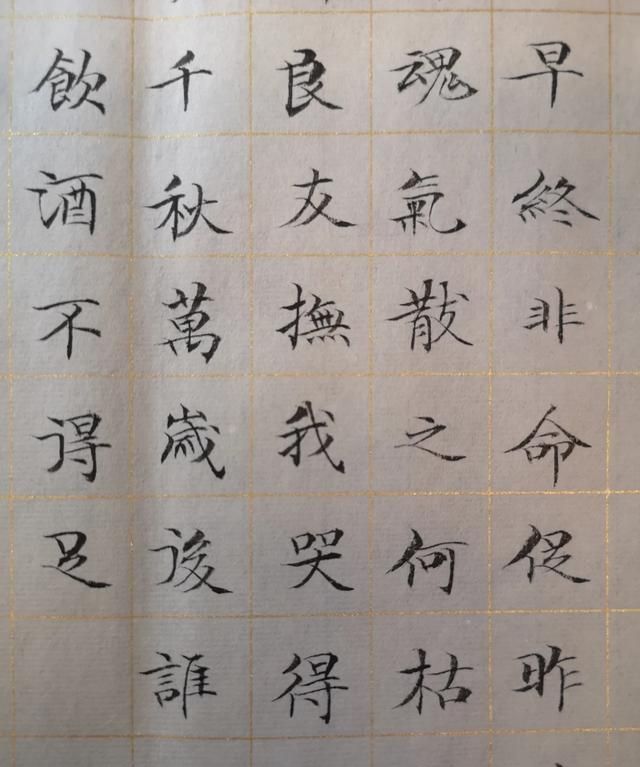 早終非命促昨
魂氣散之何枯
良友撫我哭得
千秋萬歲後誰
飲酒不得足